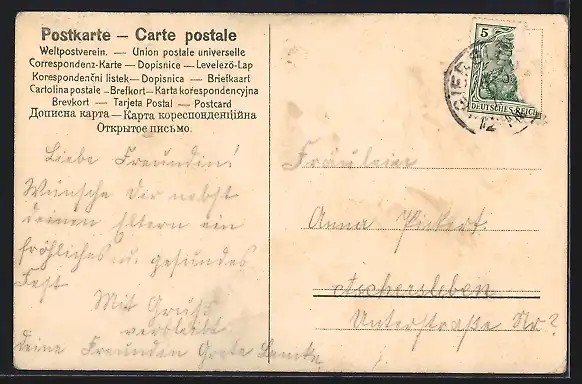 Postkarte — Carte postale
Weltpostverein. — Union postale universelle
Correspondenz-Karte — Dopisnice — Levelező-Lap
Korespondenční listek — Dopisnica — Briefkaart
Cartolina postale — Brefkort — Karta korespondencyjna
Brevkort — Tarjeta Postal — Postcard
Дописна карта — Карта кореспонденційна
Открытое письмо.
Liebe Freundin!
Wünsche Dir nebst
deinen Eltern ein
fröhliches u. gesundes
Fest
Mit Gruß
verbleibt
deine Freunden Grete
5
DEUTSCHES REICH
12
Fräulein
Anna Pickert.
Aschersleben
Unterstraße Nr?